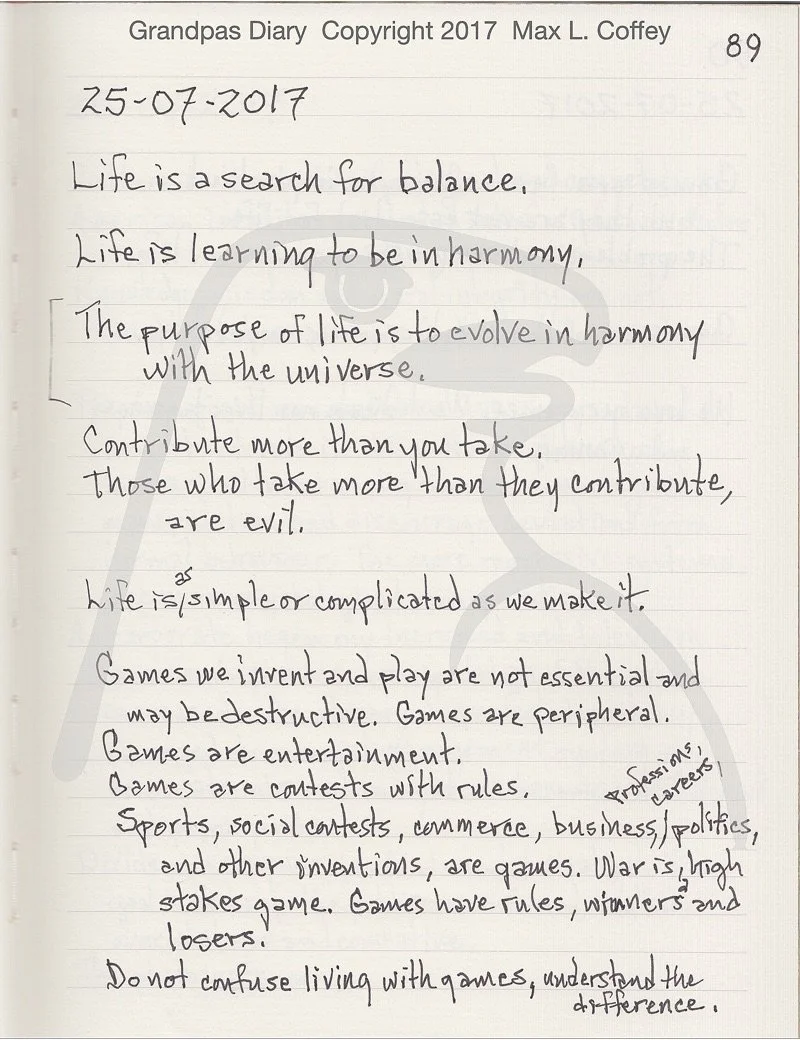 Grandpas Diary Copyright 2017 Max L. Coffey
89
25-07-2017
Life is a search for balance.
Life is learning to be in harmony.
The purpose of life is to evolve in harmony
with the universe.
Contribute more than you take.
Those who take more than they contribute,
are evil.
as
Life is simple or complicated as we make it.
Games we invent and play are not essential and
may be destructive. Games are peripheral.
Games are entertainment.
Games are contests with rules.
professions,
careers,
Sports, social contests, commerce, business, politics,
and other inventions, are games. War is high
a
stakes game. Games have rules, winners and
losers.
Do not confuse living with games, understand the
difference.